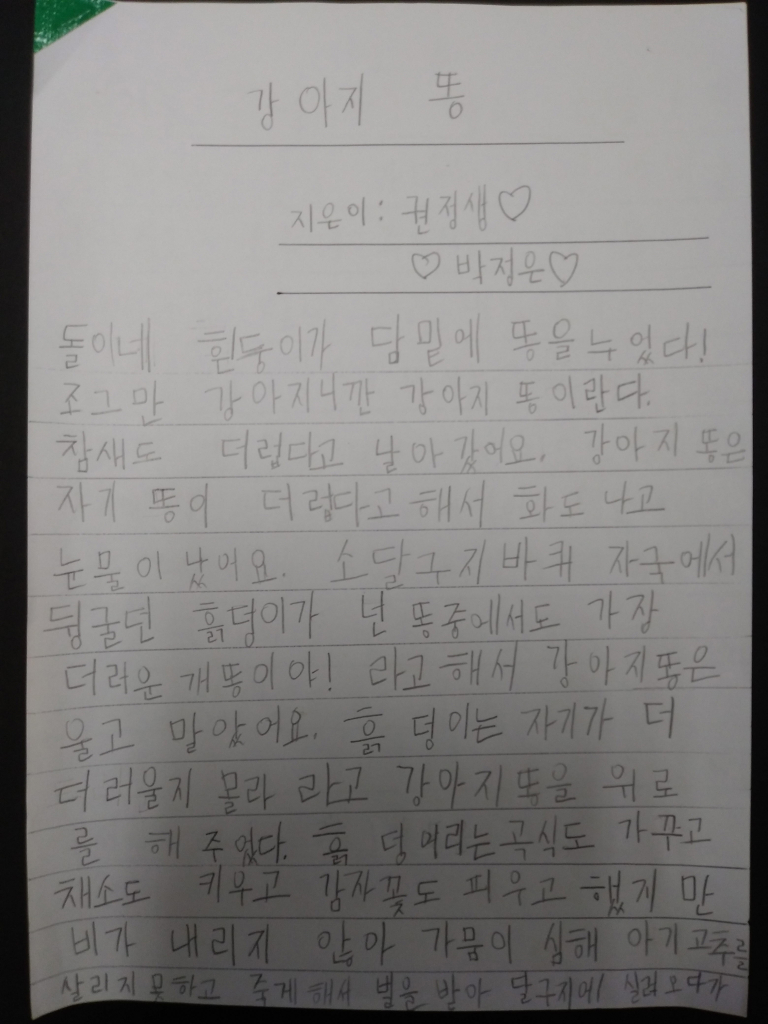 강아지 똥
지은이: 권정생♡
♡ 박정은♡
돌이네 흰둥이가 담밑에 똥을누었다!
조그만 강아지니깐 강아지 똥이란다.
참새도 더럽다고 날아갔어요. 강아지 똥은
자기 똥이 더럽다고해서 화도나고
눈물이 났어요. 소달구지바퀴 자국에서
뒹굴던 흙덩이가 넌 똥중에서도 가장
더러운 개똥이야! 라고해서 강아지똥은
울고 말았어요. 흙 덩이는 자기가 더
더러울지 몰라 라고 강아지똥을 위로
를 해 주었다. 흙 덩어리는곡식도 가꾸고
채소도 키우고 감자꽃도 피우고 했지 만
비가 내리지 않아 가뭄이 심해 아기고추를
살리지못하고 죽게해서 벌을 받아 달구지에 실려오다가